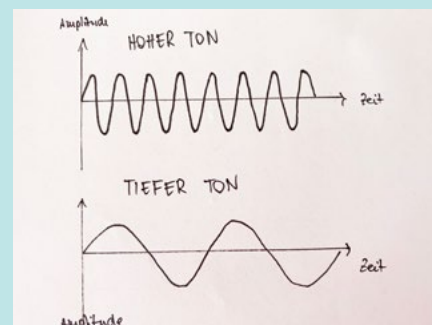 Amplitude
HOHER TON
Zeit
TIEFER TON
Zeit
Amplitude